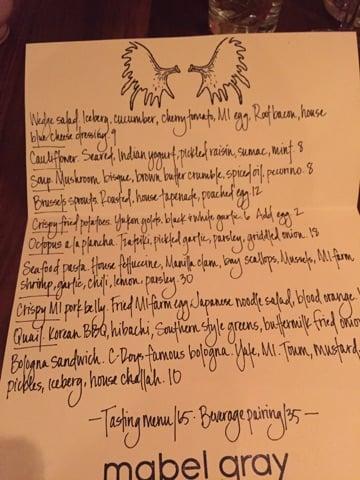 Wedge salad. Iceberg, cucumber, cherry tomato, MI egg, Roof bacon, house
blue cheese dressing. 9
Cauliflower. Seared, Indian yogurt, pickled raisin, sumac, mint. 8
Soup. Mushroom bisque, brown butter crumble, spiced oil, pecorino. 8
Brussels sprouts. Roasted, house tapenade, poached egg 12
Crispy fried potatoes. Yukon golds. black & white garlic. 6 Add egg 2
Octopus a la plancha. Tzatziki, pickled garlic, parsley, griddled onion. 18
Seafood pasta. House fettuccine, Manilla clam, bay scallops, Mussels, MI farm
shrimp, garlic, chili, lemon, parsley. 30
Crispy MI pork belly. Fried MI farm egg. Japanese noodle salad, blood orange.
Quail. Korean BBQ, hibachi, Southern style greens, buttermilk fried onion
Bologna sandwich. C Doys famous bologna. Yale, MI. Toum, mustard,
pickles, iceberg, house challah. 10
—Tasting menu/65. Beverage pairing/35—
mabel gray